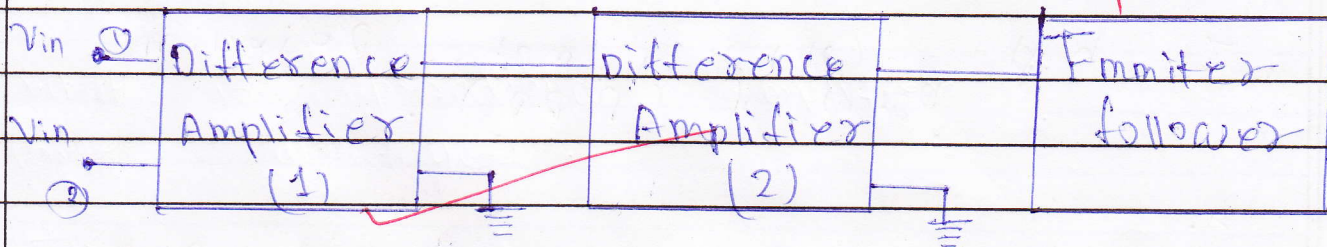 Vin ①
Difference
Amplifier
(1)
Vin
②
Difference
Amplifier
(2)
Emmiter
follower